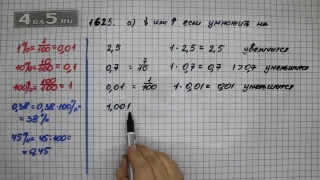 4ДЗ5.RU
1625. а) ↓ или ↑ если умножить на
1% = 1/100 = 0,01
10% = 10/100 = 0,1
100% = 100/100 = 1
0,38 = 0,38·100% =
= 38%
45% = 45:100 =
= 0,45
2,5 1·2,5 = 2,5 увеличится
0,7 = 7/10 1·0,7 = 0,7 1>0,7 уменьшится
0,01 = 1/100 1·0,01 = 0,01 уменьшится
1,001